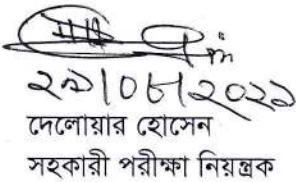 ২৯/০৮/২০২১
দেলোয়ার হোসেন
সহকারী পরীক্ষা নিয়ন্ত্রক